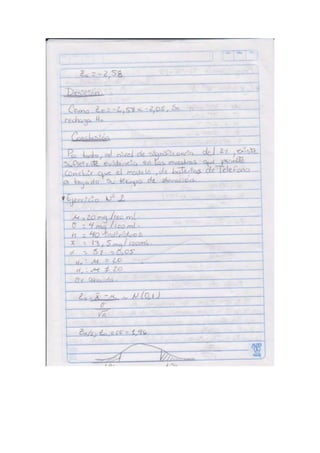 Zo = -2,58
Decisión
Como Zo = -2,58 < -2,05, Se
rechaza Ho
Conclusión
Por tanto, al nivel de significancia del 2%, existe
suficiente evidencia en las muestras que permite
concluir que el modelo, de baterias de Telefono
su tiempo de duración.
Ejercicio Nº 2
M = 20 mg/100 ml
σ = 4 mg/100 ml
n = 40 individuos
X = 18,5 mg/100ml
α = 0.05
Ho: M = 20
H1: M ≠ 20
Zo = X - M ~ N(0,1)
σ
√n
= 1,96